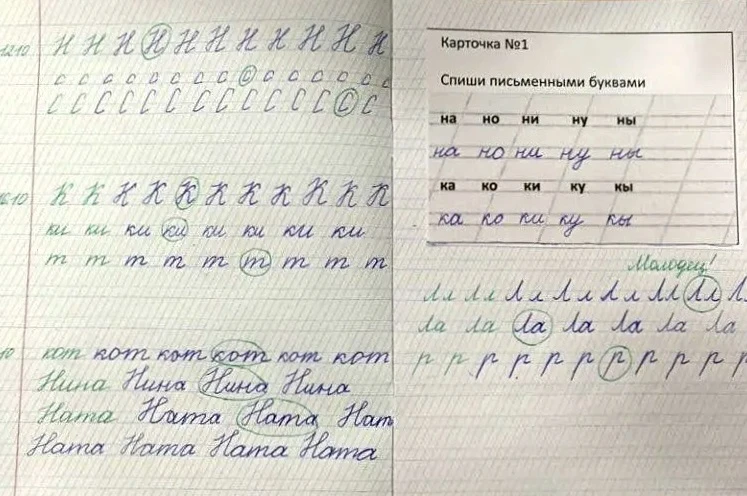 12.10 Н Н Н Н Н Н Н Н Н Н Н
с с с с с с с с с с с с с
С С С С С С С С С С С С
К К К К К К К К К К К
ки ки ки ки ки ки ки ки
т т т т т т т т т
кот кот кот кот кот кот
Нина Нина Нина Нина
Ната Ната Ната Нат
Ната Ната Ната Ната
Карточка №1
Спиши письменными буквами
на но ни ну ны
на но ни ну ны
ка ко ки ку кы
ка ко ки ку кы
Молодец!
Лл Лл Лл Лл Лл Лл Лл Л
Ла Ла Ла Ла Ла Ла Ла
р р р р р р р р р р р